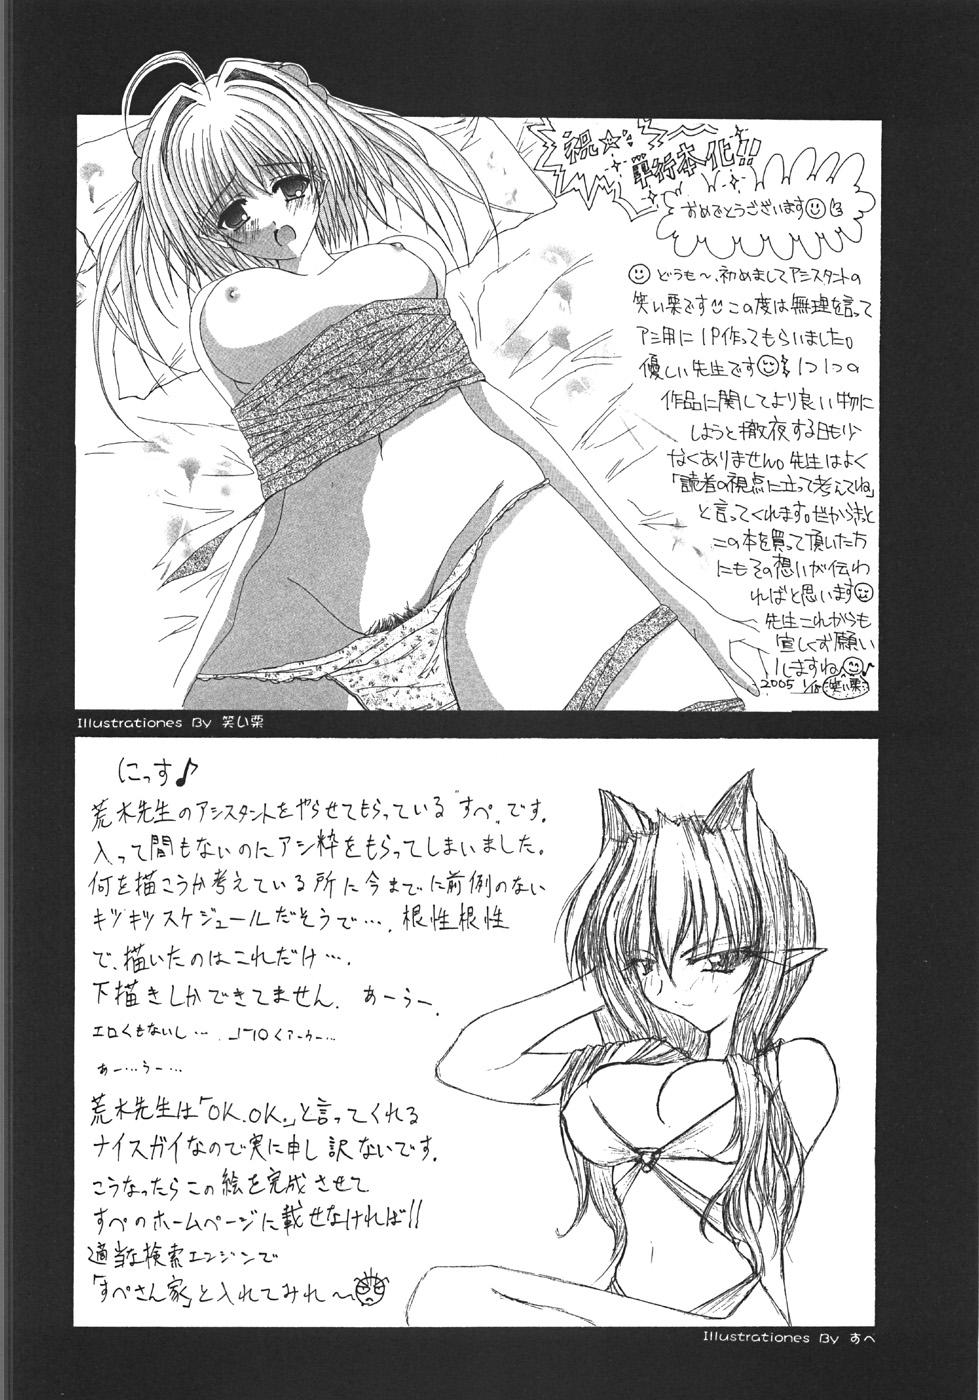 祝☆
単行本化!!
おめでとうございます
どうも〜、初めましてアシスタントの
笑い栗です この度は無理を言って
アシ用に1P作ってもらいました。
優しい先生です 1つ1つの
作品に関してより良い物に
しようと徹夜する日も少
なくありません。先生はよく
「読者の視点に立って考えてね」
と言ってくれます。だからきっと
この本を買って頂いた方
にもその想いが伝わ
ればと思います
先生これからも
宜しくお願い
しますね♪
2005 1/18 笑い栗
Illustrationes By 笑い栗
にっす♪
荒木先生のアシスタントをやらせてもらっている"すぺ"です。
入って間もないのにアシ枠をもらってしまいました。
何を描こうか考えている所に今までに前例のない
キツキツスケジュールだそうで…。根性根性
で、描いたのはこれだけ…。
下描きしかできてません。あーうー。
エロくもないし…
あー…うー…
荒木先生は「OK.OK.」と言ってくれる
ナイスガイなので実に申し訳ないです。
こうなったらこの絵を完成させて
すぺのホームページに載せなければ!!
適当な検索エンジンで
「すぺさん家」と入れてみれ〜
Illustrationes By すぺ